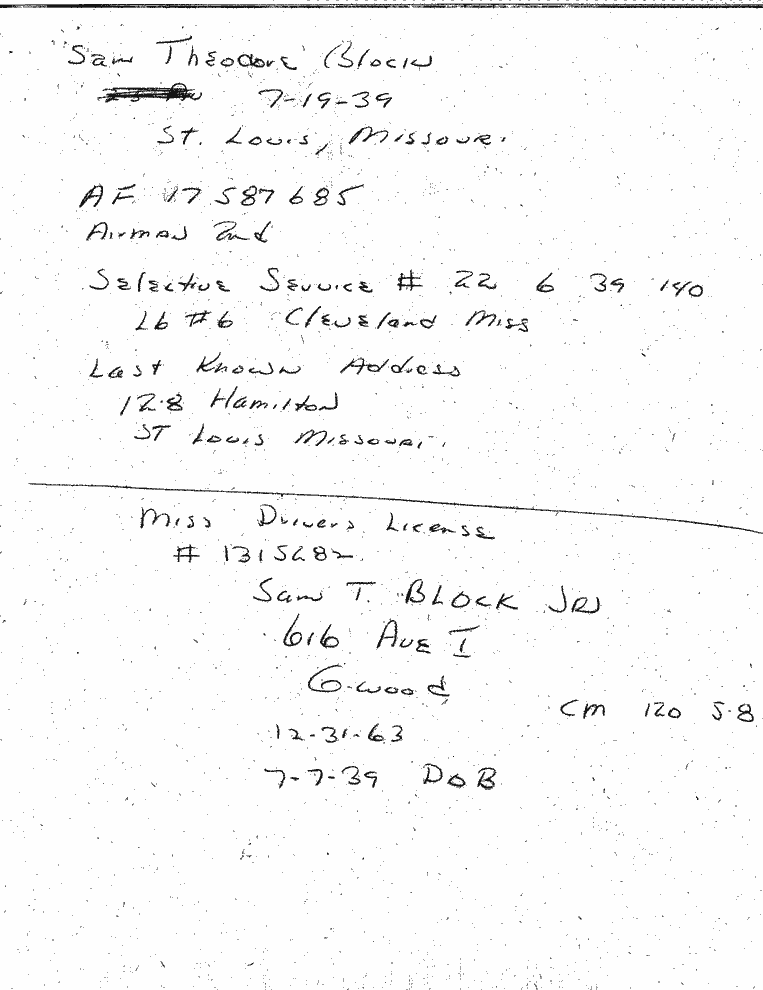 Sam Theodore Block
7-19-39
St. Louis, Missouri
AF 17 587 685
Airman 2nd
Selective Service # 22 6 39 140
LB #6 Cleveland Miss
Last Known Address
12·8 Hamilton
ST Louis Missouri
Miss Drivers License
# 1315682
Sam T. BLOCK JR
616 Ave I
G-wood
CM 120 5-8
12-31-63
7-7-39 DOB